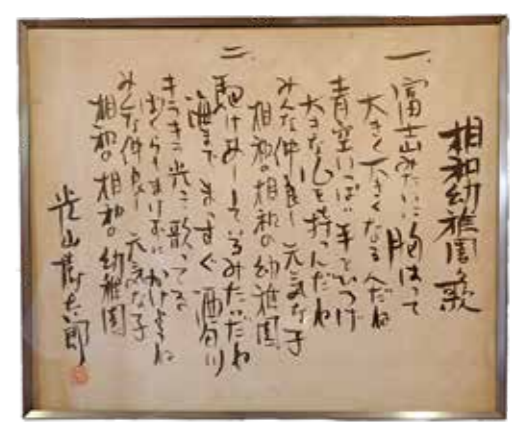 相和幼稚園の歌
一、富士山みたいに胸はって
大きく大きくなるんだね
青空いっぱい手をひろげ
大きな心を持つんだね
みんな仲良し元気な子
相和の相和の幼稚園
二、駆けあしているみたいだね
海までまっすぐ酒匂川
キラキラ光って歌ってる
ぼくらもまけずにかけようね
みんな仲良し元気な子
相和の相和の幼稚園